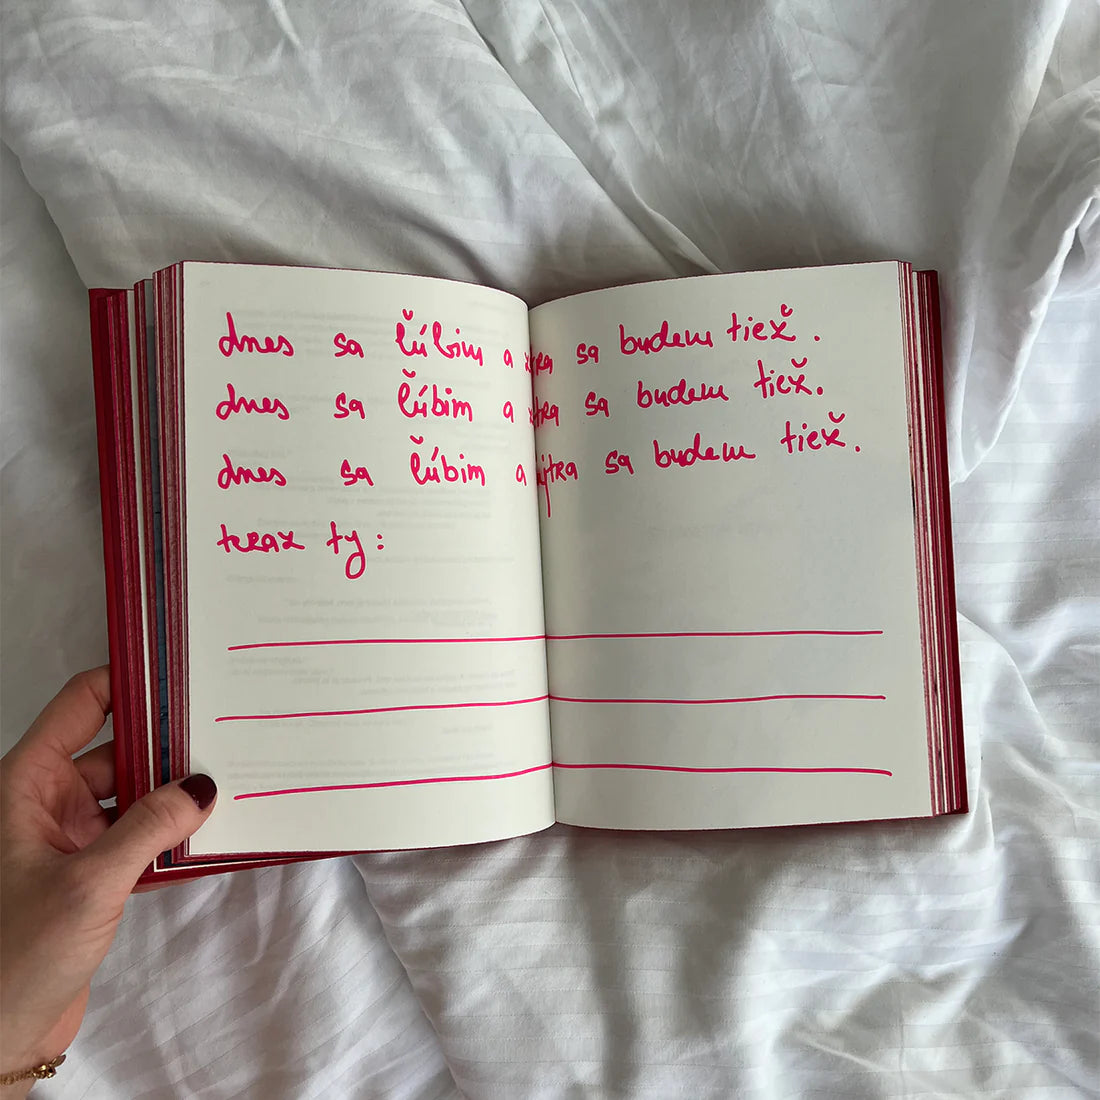 dnes sa ľúbim a zajtra sa budem tiež.
dnes sa ľúbim a zajtra sa budem tiež.
dnes sa ľúbim a zajtra sa budem tiež.
teraz ty: